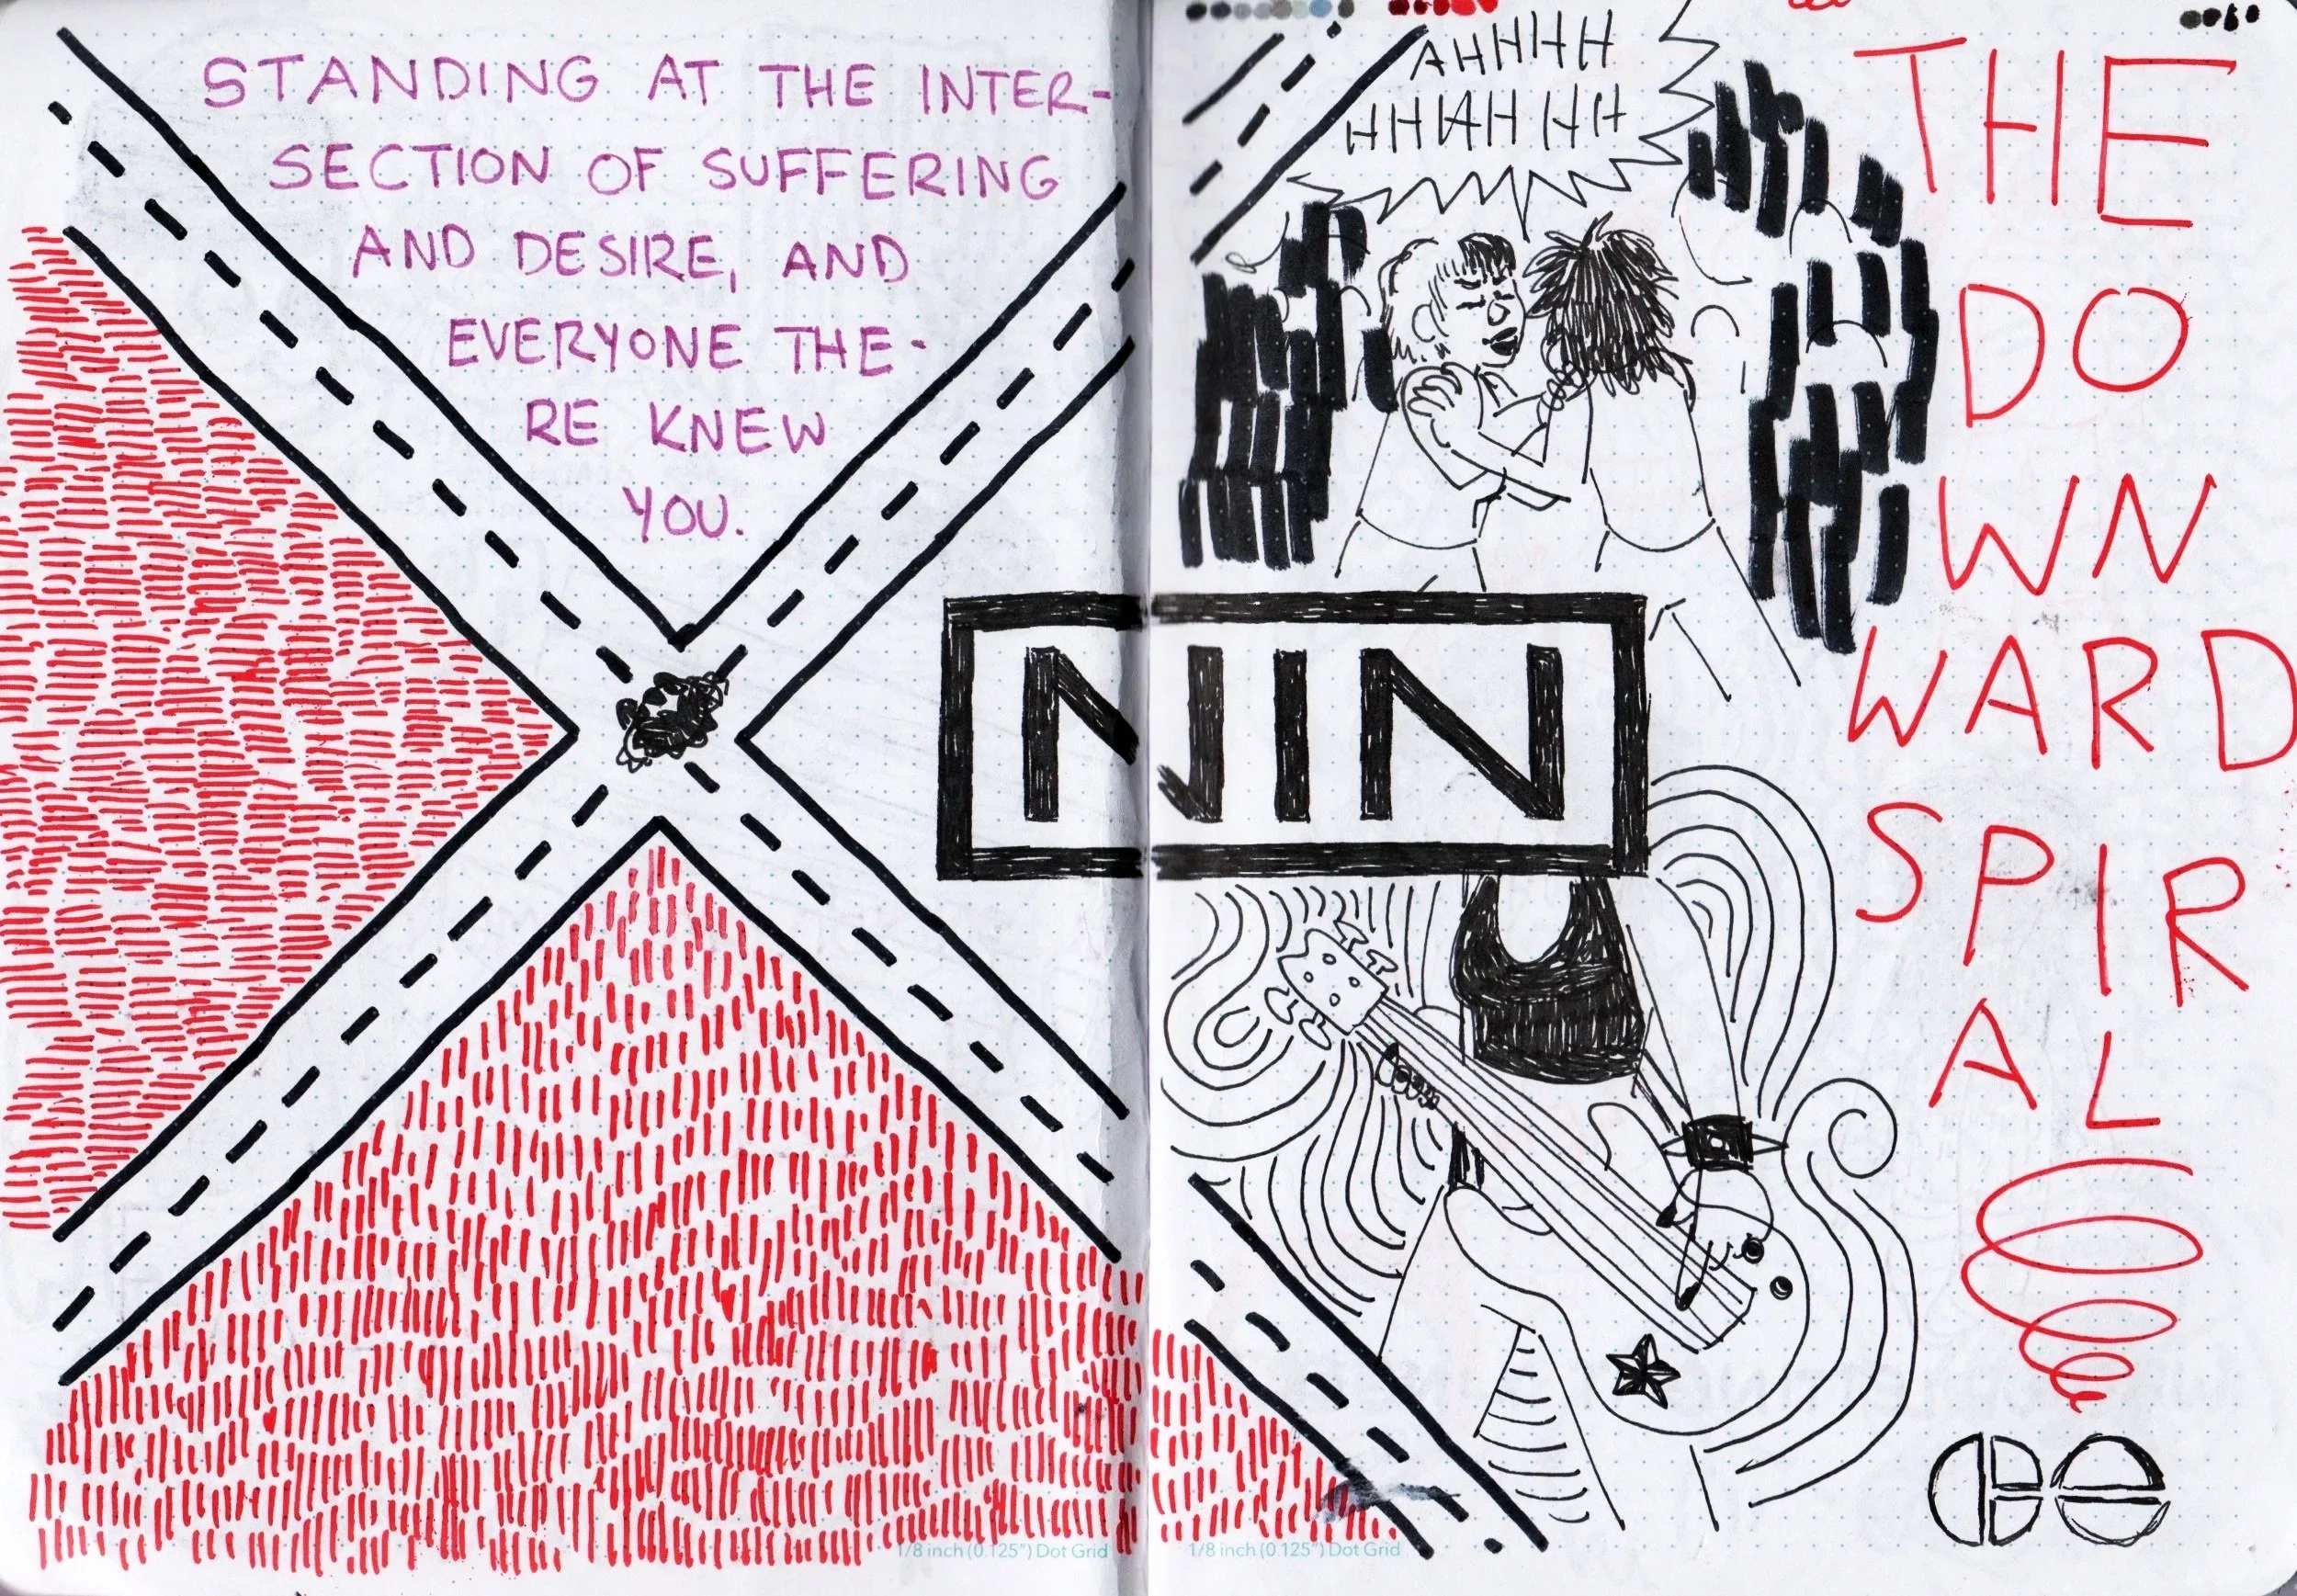 STANDING AT THE INTER-
SECTION OF SUFFERING
AND DESIRE, AND
EVERYONE THE-
RE KNEW
YOU.
AHHHH
HHHAH HH
THE
DO
WN
WARD
SPIR
AL
NIN
1/8 inch (0.125") Dot Grid
1/8 inch (0.125") Dot Grid